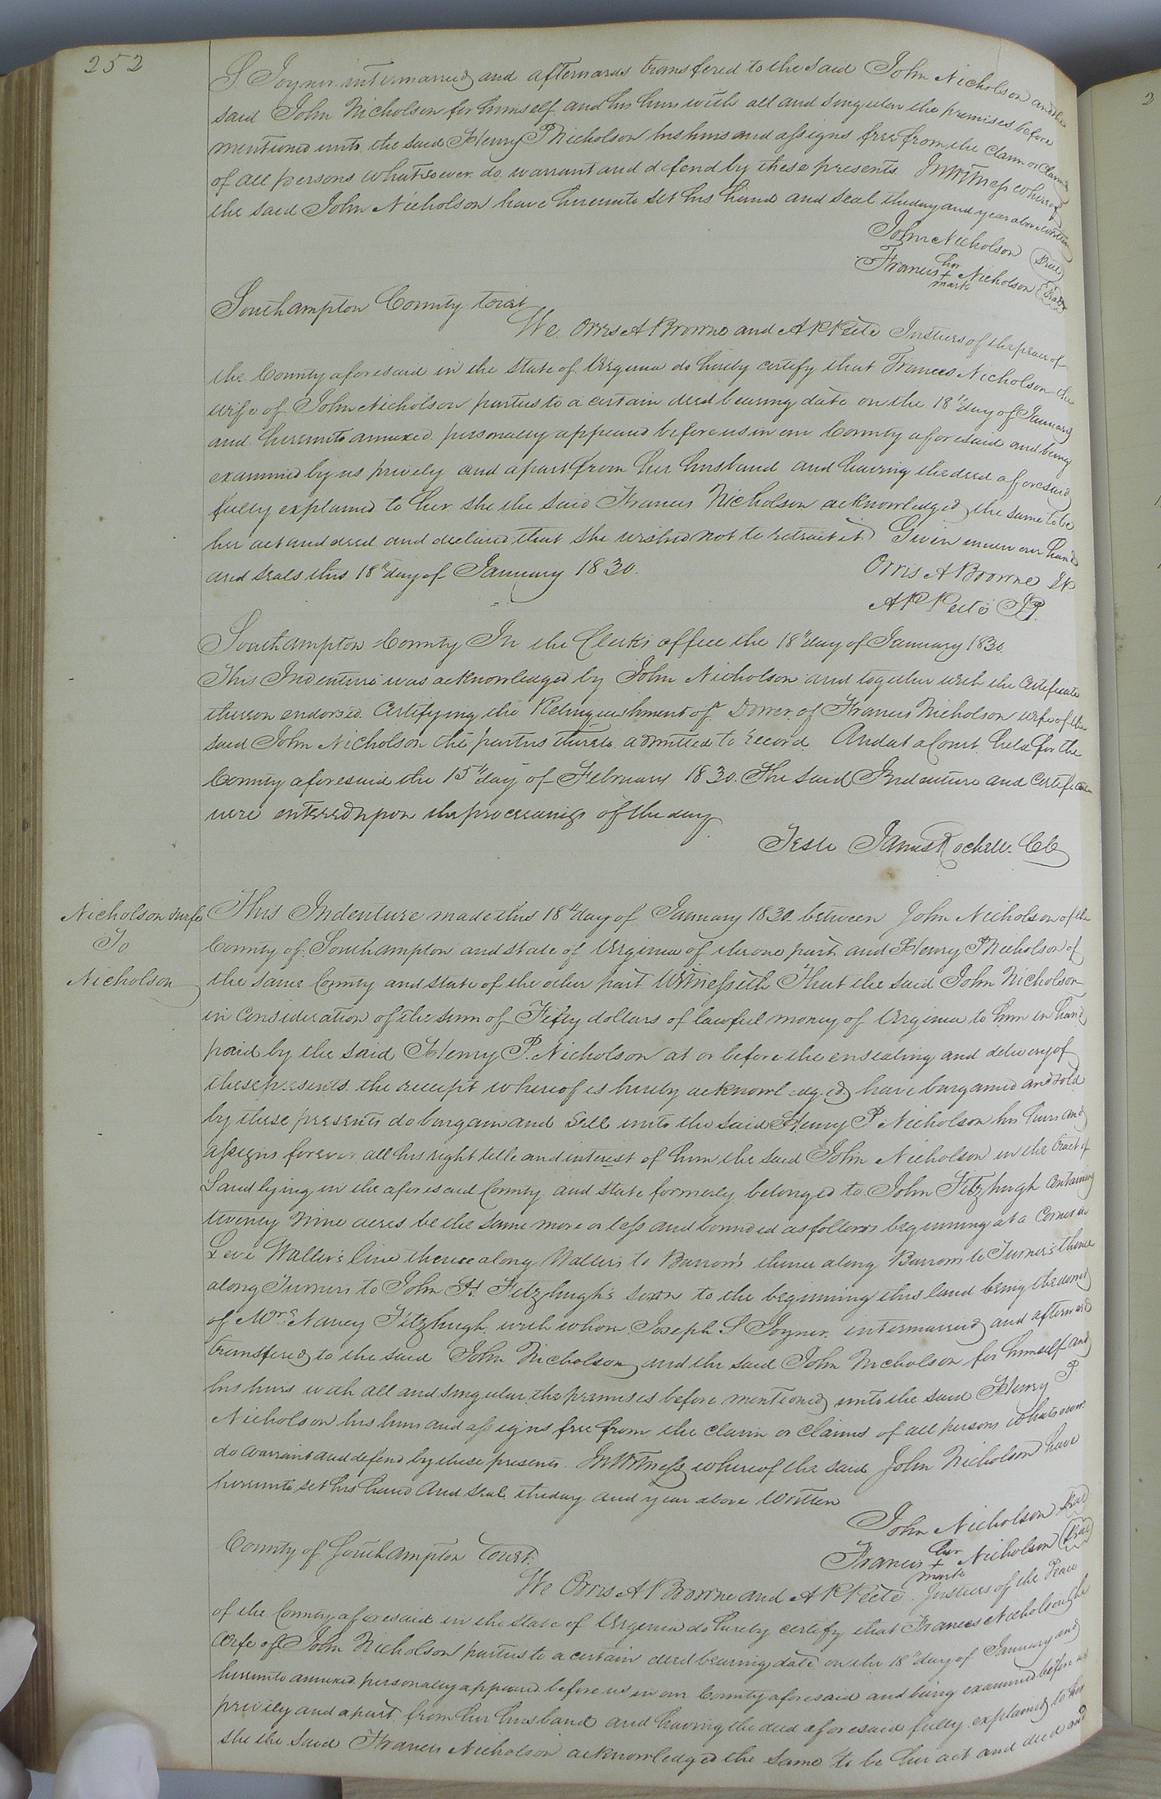 252
S Joyner intermarried and afterwards transfered to the said John Nicholson and the
said John Nicholson for himself and his heirs with all and singular the premises before
mentioned unto the said Henry P Nicholson his heirs and assigns free from the claim or claims
of all persons whatsoever do warrant and defend by these presents In Witness whereof
the said John Nicholson have hereunto set his hand and seal the day and year above written
John Nicholson Seal
Francis her + mark Nicholson Seal
Southampton County towit
We Orris A Browne and A P Peete Justices of the peace of
the County aforesaid in the State of Virginia do hereby certify that Frances Nicholson the
wife of John Nicholson parties to a certain deed bearing date on the 18th day of January
and hereunto annexed personally appeared before us in our County aforesaid and being
examined by us privily and apart from her husband and having the deed aforesaid
fully explained to her she the said Francis Nicholson acknowledged the same to be
her act and deed and declared that she wished not to retract it Given under our hands
and seals this 18th day of January 1830.
Orris A Browne JP
A P Peete JP.
Southampton County In the Clerk's office the 18th day of January 1830
This Indenture was acknowledged by John Nicholson and together with the Certificate
thereon endorsed. Certifying the Relinquishment of Dower of Francis Nicholson wife of the
said John Nicholson the parties thereto admitted to record. And at a Court held for the
County aforesaid the 15th day of February 1830. The said Indenture and Certificate
were entered upon the proceedings of the day
Teste James Rochelle. CC
Nicholson &wife
To
Nicholson
This Indenture made this 18th day of January 1830. between John Nicholson of the
County of Southampton and state of Virginia of the one part and Henry P Nicholson of
the same County and state of the other part Witnesseth That the said John Nicholson
in consideration of the sum of Fifty dollars of lawful money of Virginia to him in hand
paid by the said Henry P. Nicholson at or before the ensealing and delivery of
these presents the receipt whereof is hereby acknowledged have bargained and sold
by these presents do bargain and sell unto the said Henry P Nicholson his heirs and
assigns forever all his right title and interest of him the said John Nicholson in the tract of
Land lying in the aforesaid County and state formerly belonged to John Fitzhugh containing
twenty nine acres be the same more or less and bounded as follows beginning at a Corner in
Waller's line thence along Wallers to Barrow's thence along Barrows to Turner's thence
along Turners to John H Fitzhugh's down to the beginning this land being the dower
of Mrs Nancy Fitzhugh with whom Joseph S Joyner intermarried and afterward
transfered to the said John Nicholson and the said John Nicholson for himself and
his heirs with all and singular the premises before mentioned unto the said Henry P
Nicholson his heirs and assigns free from the claim or claims of all persons whatsoever
do warrant and defend by these presents. In Witness whereof the said John Nicholson have
hereunto set his hand and seal the day and year above Written
John Nicholson Seal
Francis her + mark Nicholson Seal
County of Southampton towit.
We Orris A Browne and A P Peete Justices of the Peace
of the County aforesaid in the state of Virginia do hereby certify that Frances Nicholson the
Wife of John Nicholson parties to a certain deed bearing date on the 18th day of January and
hereunto annexed personally appeared before us in our County aforesaid and being examined before us
privily and apart from her husband and having the deed aforesaid fully explained to her
she the said Francis Nicholson acknowledged the same to be her act and deed and